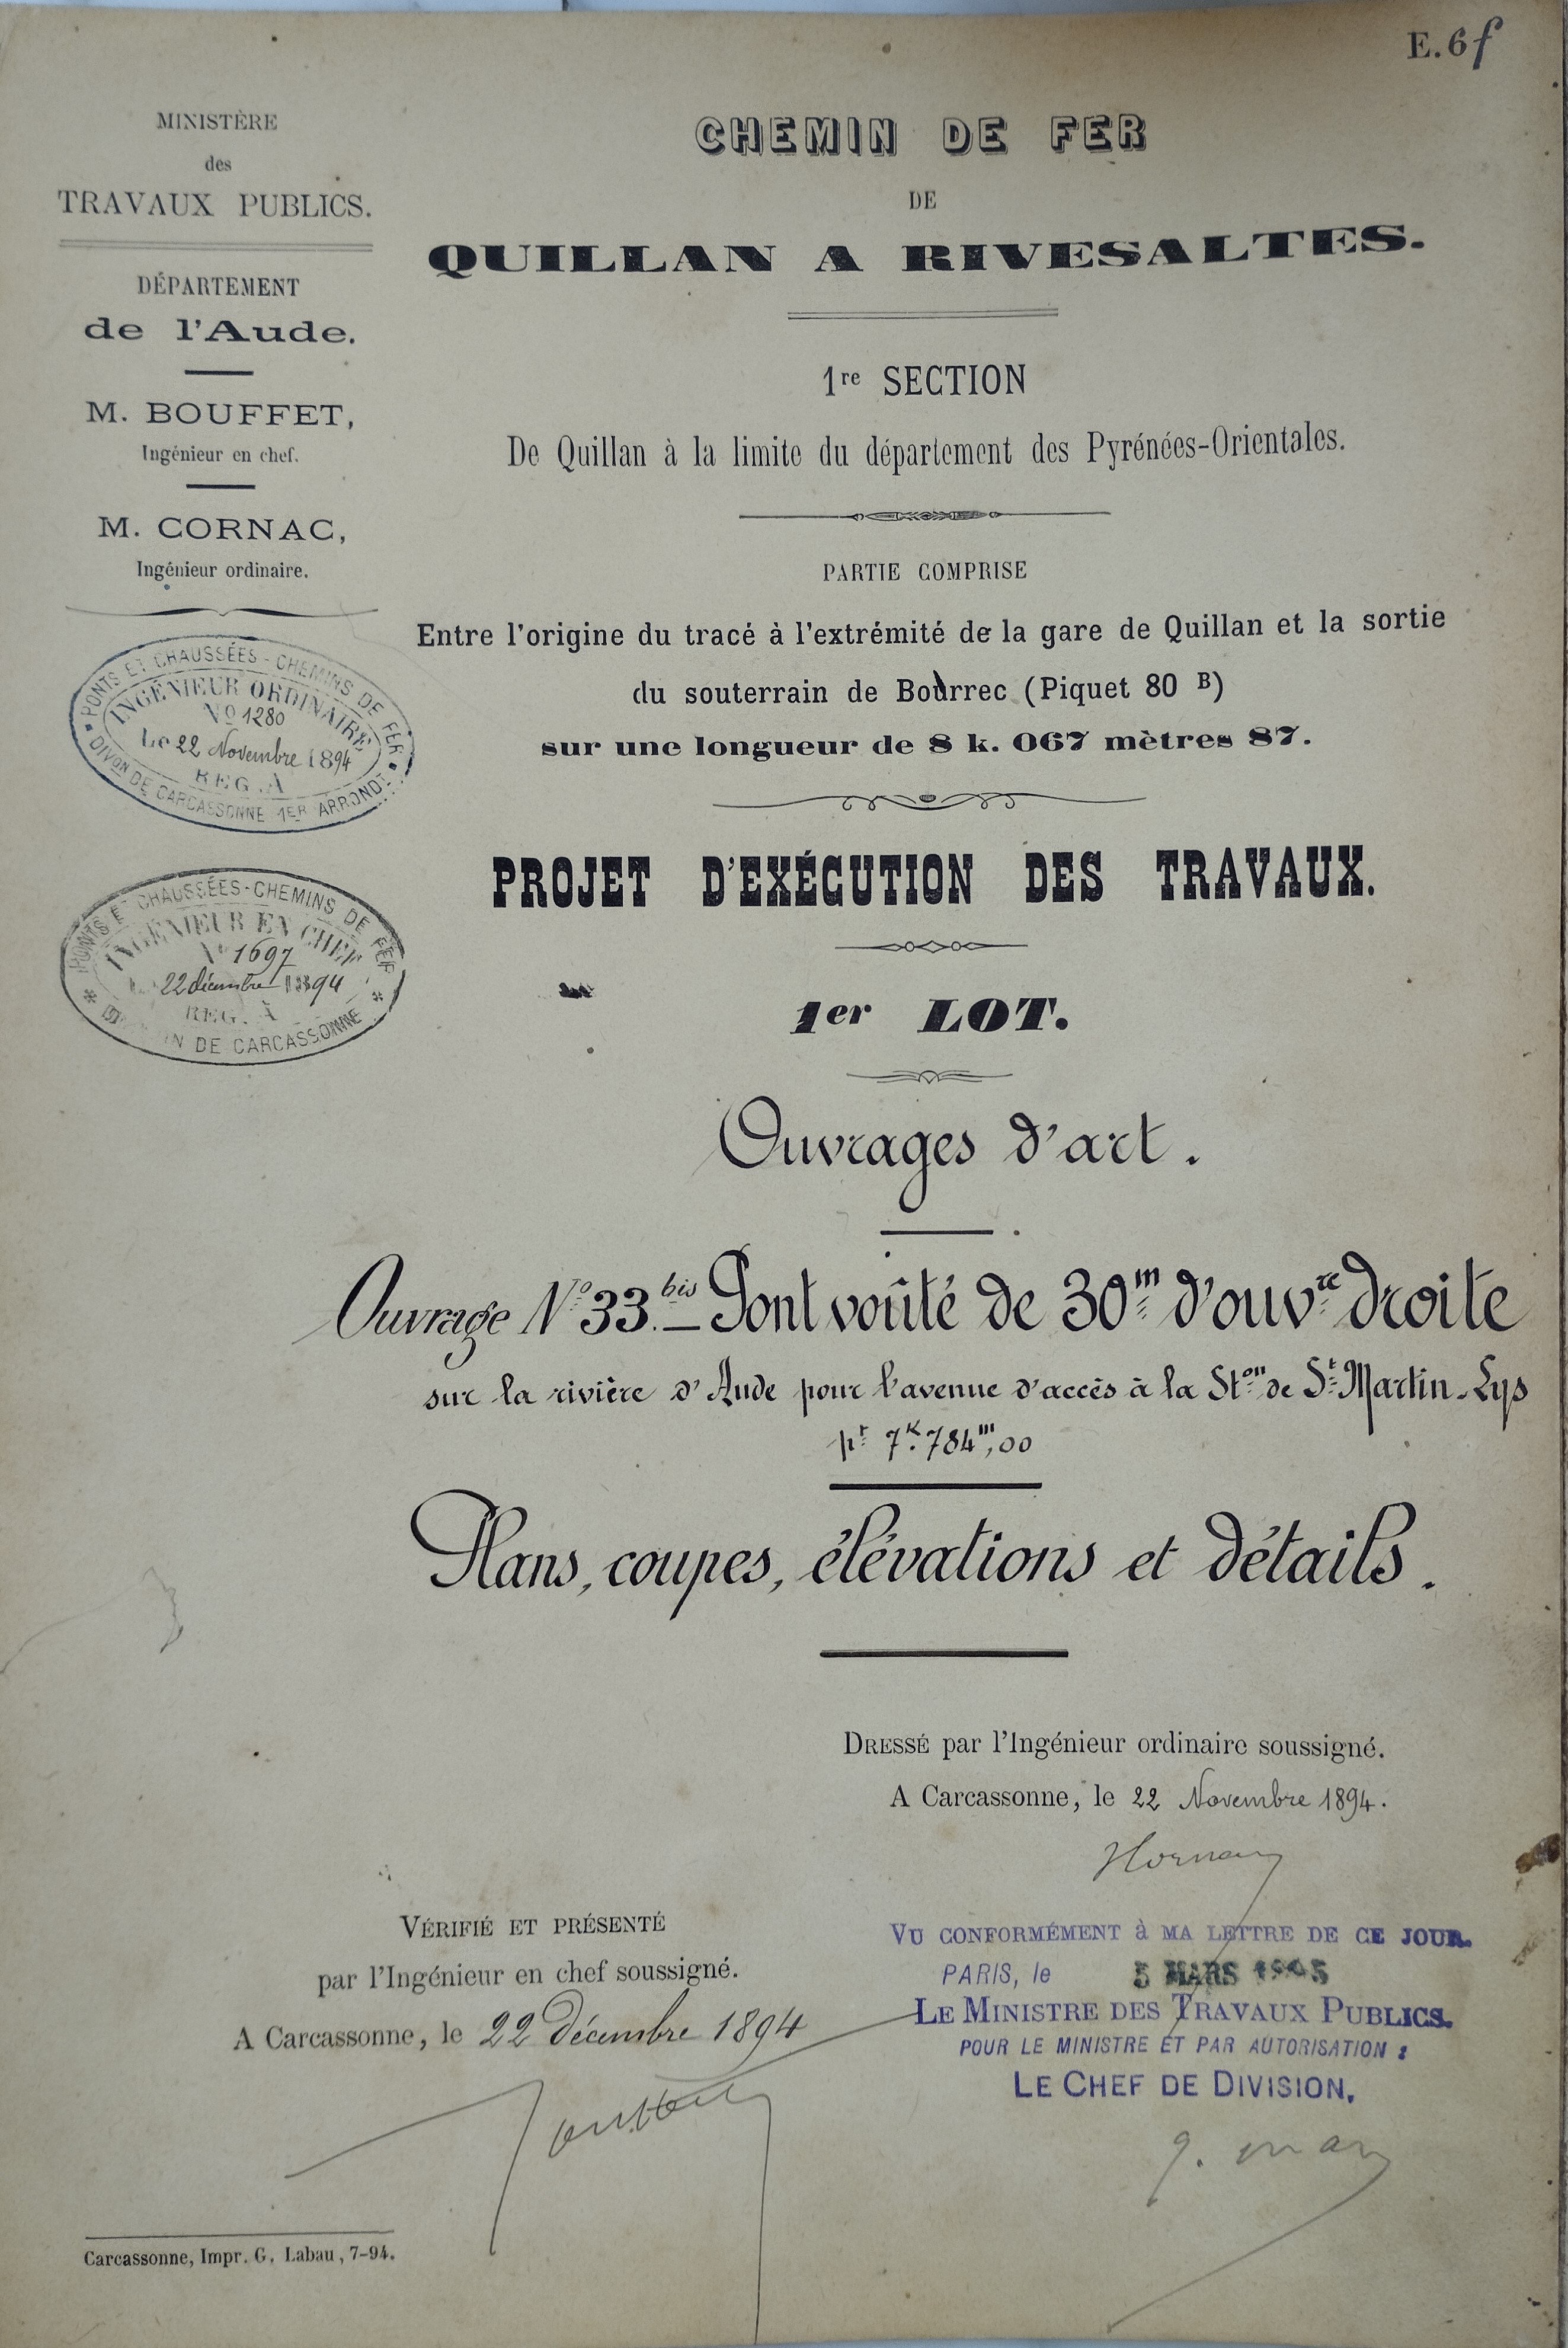 E.6f
MINISTÈRE
des
TRAVAUX PUBLICS.
DÉPARTEMENT
de l'Aude.
M. BOUFFET,
Ingénieur en chef.
M. CORNAC,
Ingénieur ordinaire.
PONTS ET CHAUSSÉES - CHEMINS DE FER
INGÉNIEUR ORDINAIRE
No 1280
Le 22 Novembre 1894
REG. A
DIVon DE CARCASSONNE 1ER ARRONDt
PONTS ET CHAUSSÉES - CHEMINS DE FER
INGÉNIEUR EN CHEF
No 1697
22 décembre 1894
REG. A
DE CARCASSONNE
CHEMIN DE FER
DE
QUILLAN A RIVESALTES.
1re SECTION
De Quillan à la limite du département des Pyrénées-Orientales.
PARTIE COMPRISE
Entre l'origine du tracé à l'extrémité de la gare de Quillan et la sortie
du souterrain de Bourrec (Piquet 80 B)
sur une longueur de 8 k. 067 mètres 87.
PROJET D'EXÉCUTION DES TRAVAUX.
1er LOT.
Ouvrages d'art.
Ouvrage No 33 bis — Pont voûté de 30m d'ouvre droite
sur la rivière d'Aude pour l'avenue d'accès à la Ston de St Martin-Lys
pt 7K.784m,00
Plans, coupes, élévations et détails.
DRESSÉ par l'Ingénieur ordinaire soussigné.
A Carcassonne, le 22 Novembre 1894.
VÉRIFIÉ ET PRÉSENTÉ
par l'Ingénieur en chef soussigné.
A Carcassonne, le 22 Décembre 1894
VU CONFORMÉMENT à MA LETTRE DE CE JOUR.
PARIS, le 5 MARS 1895
LE MINISTRE DES TRAVAUX PUBLICS.
POUR LE MINISTRE ET PAR AUTORISATION :
LE CHEF DE DIVISION,
Carcassonne, Impr. G. Labau, 7-94.